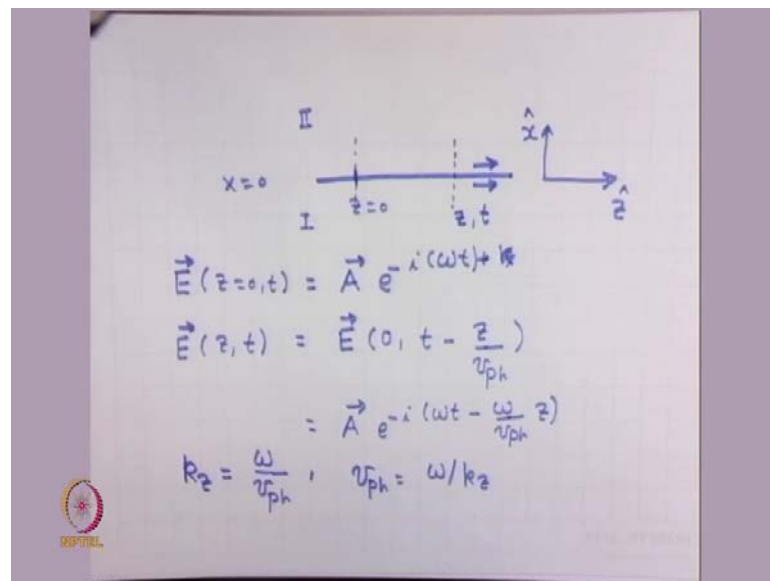 II
x̂
x=0
z=0
z, t
ẑ
I
E⃗ (z=0,t) = A⃗ e^{-i(ωt)}
E⃗ (z,t) = E⃗ (0, t - z/v_ph)
= A⃗ e^{-i(ωt - ω/v_ph z)}
k_z = ω/v_ph , v_ph = ω/k_z
NPTEL